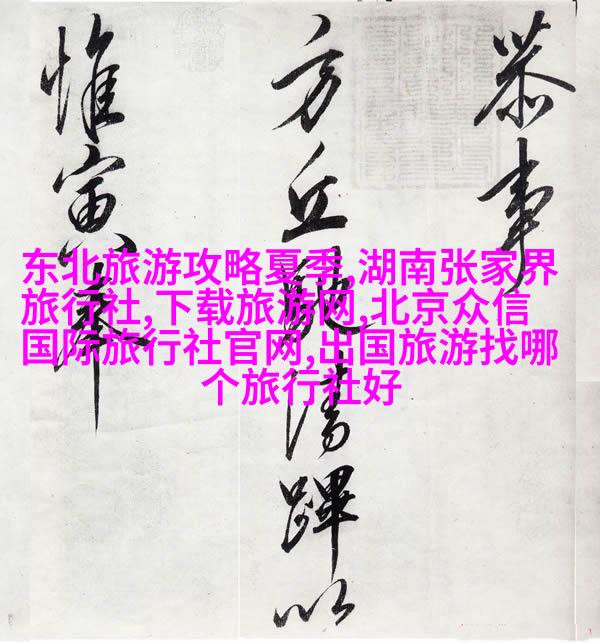 恭事
方丘清蹕以
惟寅奉
东北旅游攻略夏季,湖南张家界
旅行社,下载旅游网,北京众信
国际旅行社官网,出国旅游找哪
个旅行社好